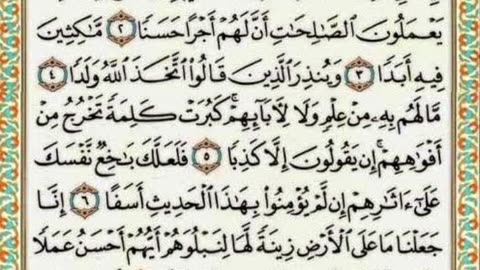 يَعْمَلُونَ ٱلصَّٰلِحَٰتِ أَنَّ لَهُمْ أَجْرًا حَسَنًا ٢ مَّٰكِثِينَ
فِيهِ أَبَدًا ٣ وَيُنذِرَ ٱلَّذِينَ قَالُوا۟ ٱتَّخَذَ ٱللَّهُ وَلَدًا ٤
مَّا لَهُم بِهِۦ مِنْ عِلْمٍ وَلَا لِءَابَآئِهِمْ ۚ كَبُرَتْ كَلِمَةً تَخْرُجُ مِنْ
أَفْوَٰهِهِمْ ۚ إِن يَقُولُونَ إِلَّا كَذِبًا ٥ فَلَعَلَّكَ بَٰخِعٌ نَّفْسَكَ
عَلَىٰٓ ءَاثَٰرِهِمْ إِن لَّمْ يُؤْمِنُوا۟ بِهَٰذَا ٱلْحَدِيثِ أَسَفًا ٦ إِنَّا
جَعَلْنَا مَا عَلَى ٱلْأَرْضِ زِينَةً لَّهَا لِنَبْلُوَهُمْ أَيُّهُمْ أَحْسَنُ عَمَلًا